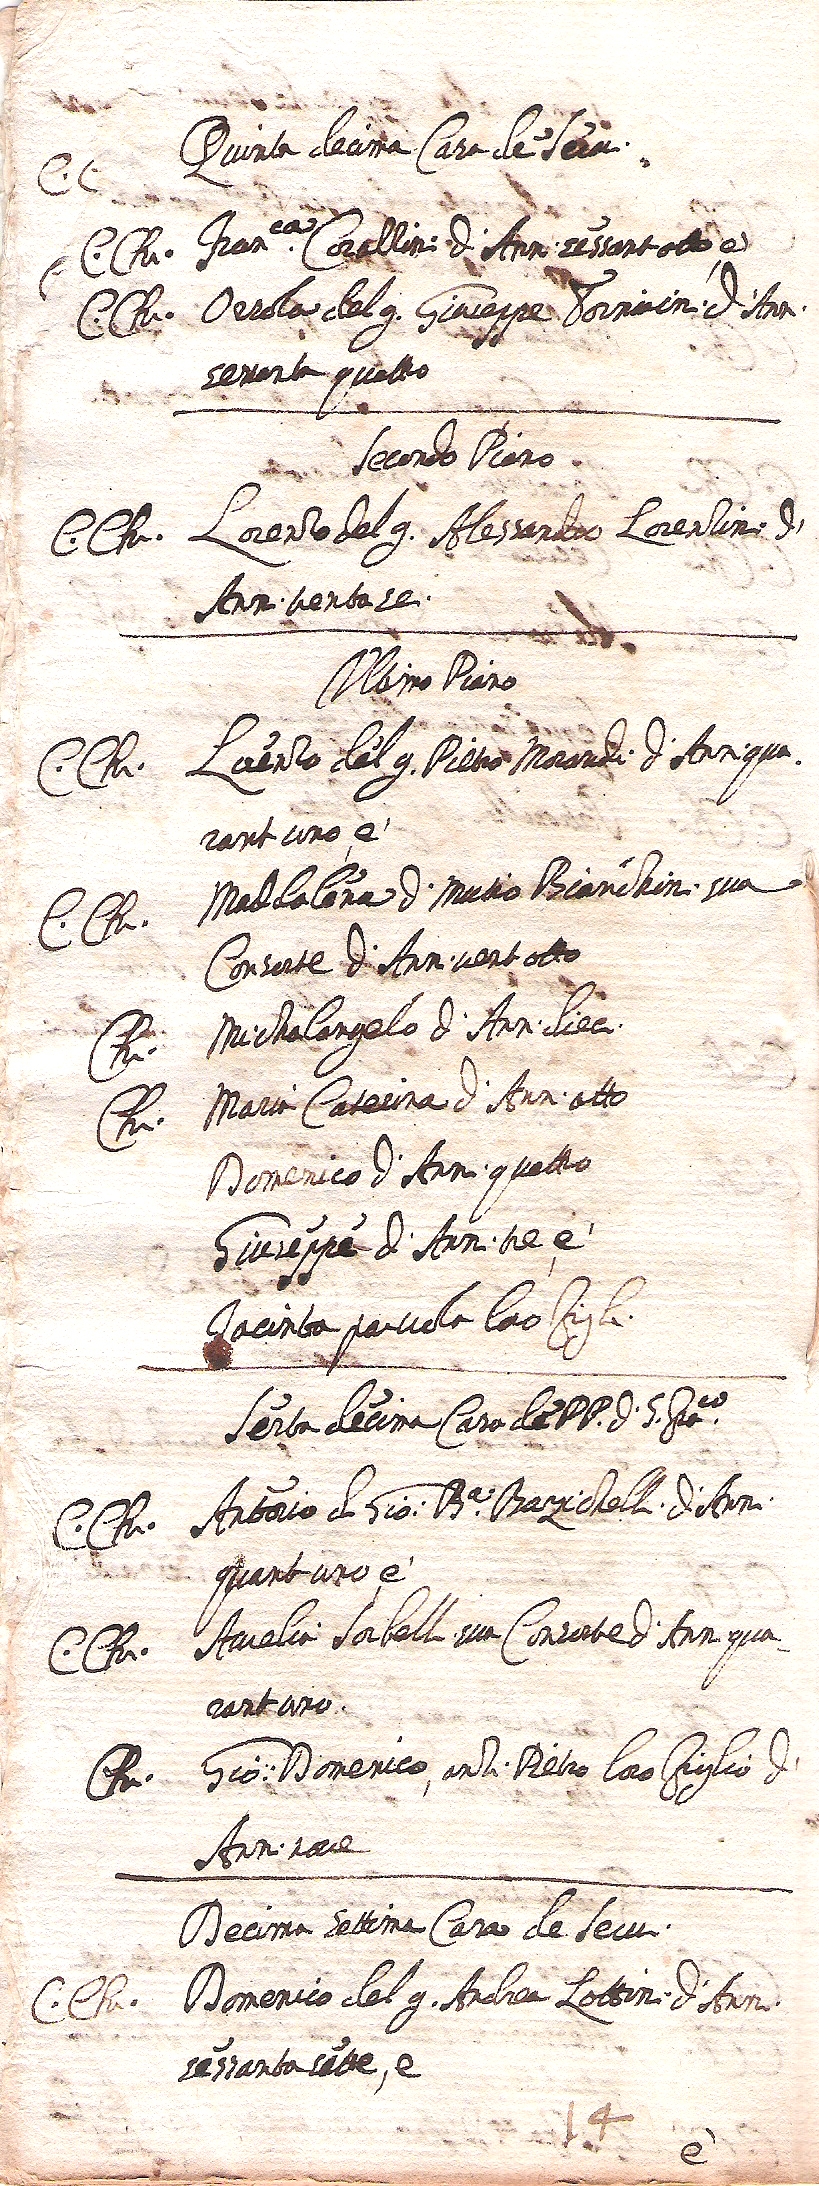 Quinta decima Casa de
C. Ch. Fran.ca Corallini d'Ann. sessantotto, e
C. Ch. Orsola del q. Giuseppe d'Ann.
settanta quattro
Secondo Piano
C. Ch. Lorenzo del q. Alessandro Lorenzini d'
Ann. trenta sei.
Ultimo Piano
C. Ch. Lorenzo del q. Pietro Morandi d'Ann. qua-
rant uno, e
C. Ch. Maddalena di Mutio Bianchini sua
Consorte d'Ann. vent otto
Ch. Michalangelo d'Ann. dieci.
Ch. Maria Caterina d'Ann. otto
Domenico d'Ann. quattro
Giuseppe d'Ann. tre, e
Jacinta piccola loro figli.
Sesta decima Casa de PP. di S.
C. Ch. Antonio di Gio: Ba. d'Ann.
quarant uno, e
C. Ch. Aurelia Sorbelli sua Consorte d'Ann. qua-
rant uno.
Ch. Gio: Domenico, anzi Pietro loro figlio d'
Ann. nove
Decima settima Casa de
C. Ch. Domenico del q. Andrea Lottini d'Ann.
sessanta sette, e
14
e